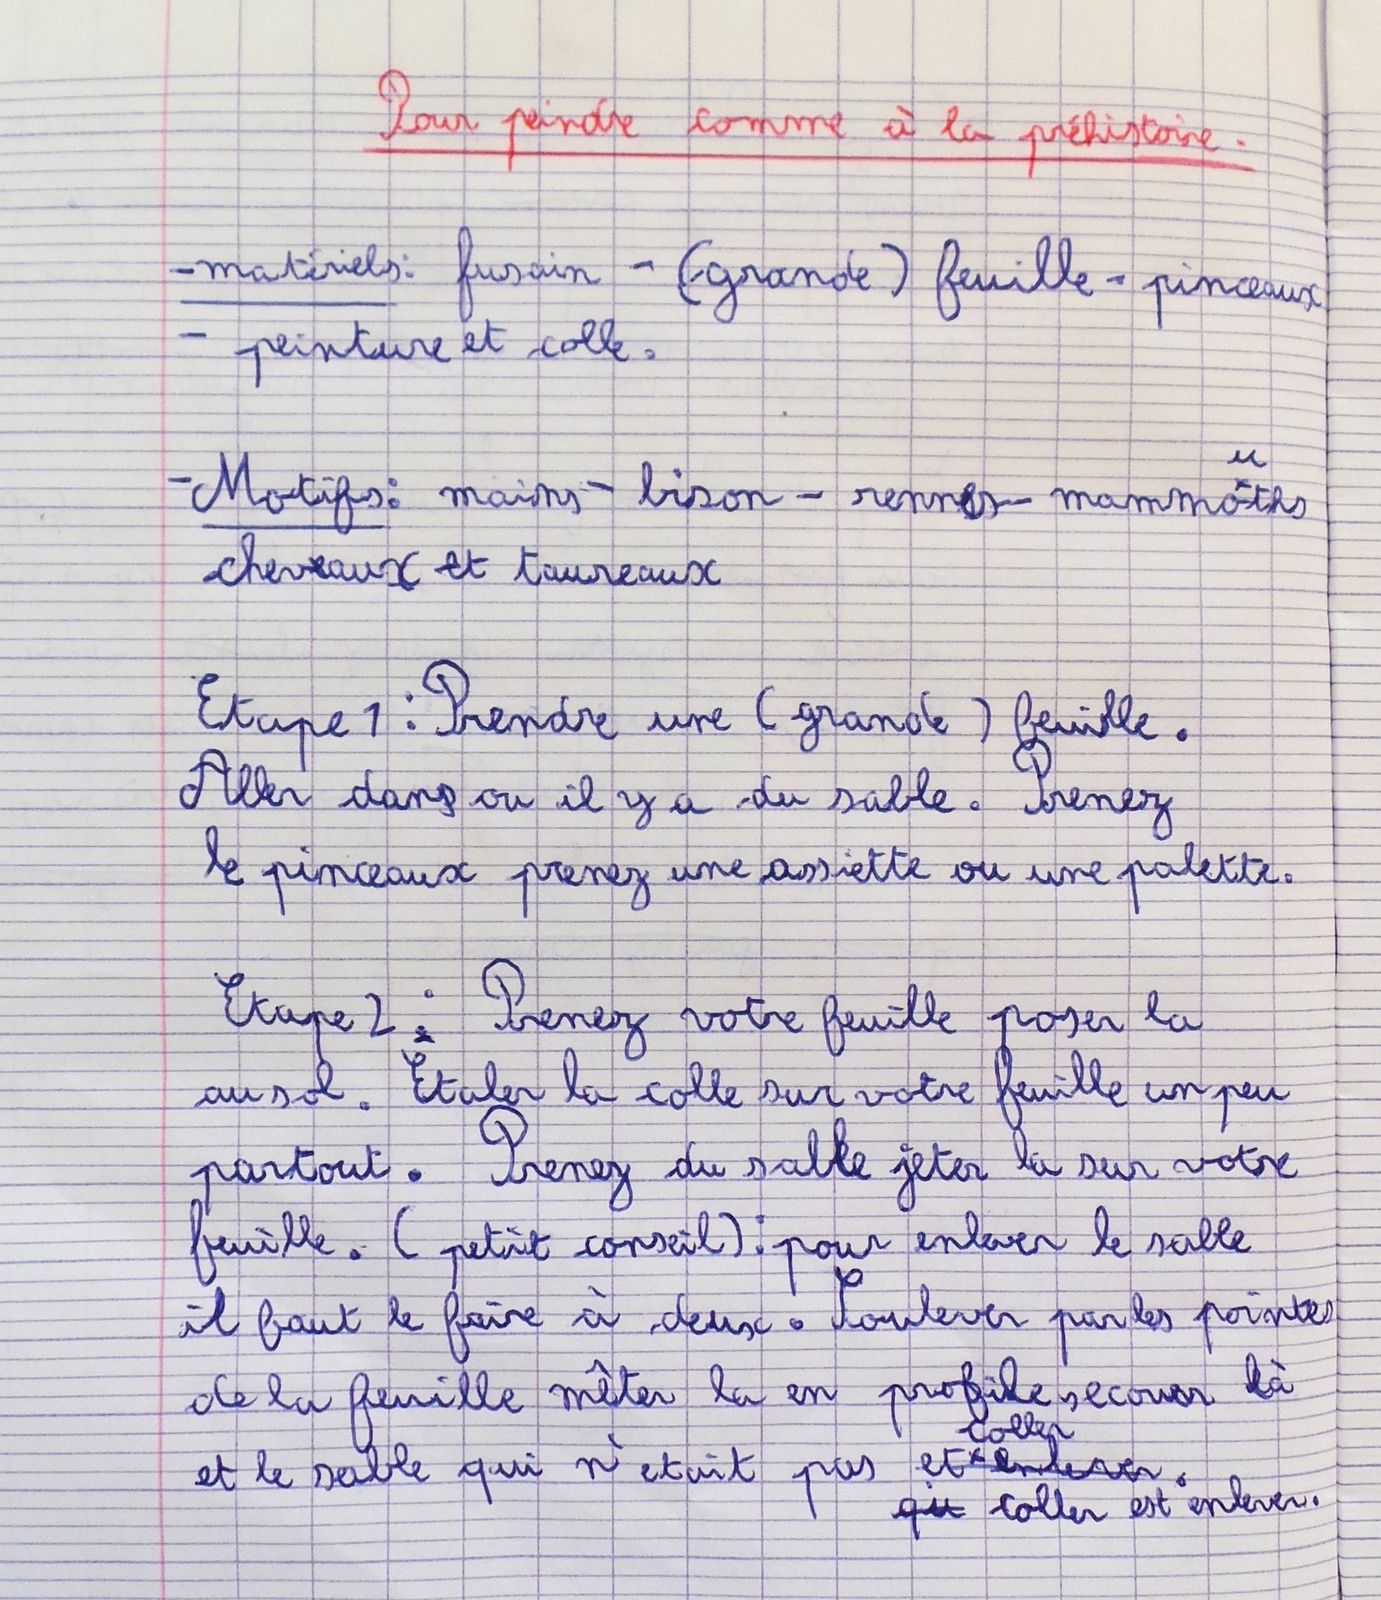 Pour peindre comme à la préhistoire.
- matériels: fusain - (grande) feuille - pinceaux
- peinture et colle.
u
- Motifs: mains - bison - rennes - mammoths
cheveaux et taureaux
Etape 1: Prendre une (grande) feuille.
Aller dans ou il y a du sable. Prenez
le pinceaux prenez une assiette ou une palette.
Etape 2: Prenez votre feuille poser la
au sol. Etaler la colle sur votre feuille un peu
partout. Prenez du sable jeter la sur votre
feuille. (petit conseil): pour enlever le sable
il faut le faire à deux. Soulever par les pointes
de la feuille mêter la en profile secouer là
coller
et le sable qui n'etait pas et enlever.
qu coller est enlever.